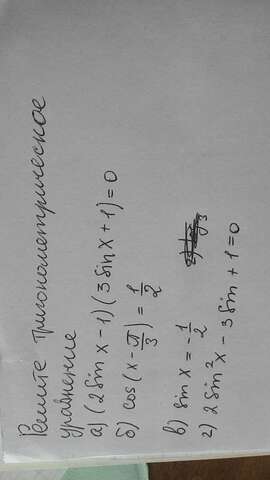 Решите тригонометрическое
уравнение
а) (2sin x - 1)(3sin x + 1) = 0
б) cos(x - π/3) = 1/2
в) sin x = - 1/2
г) 2sin²x - 3sin + 1 = 0